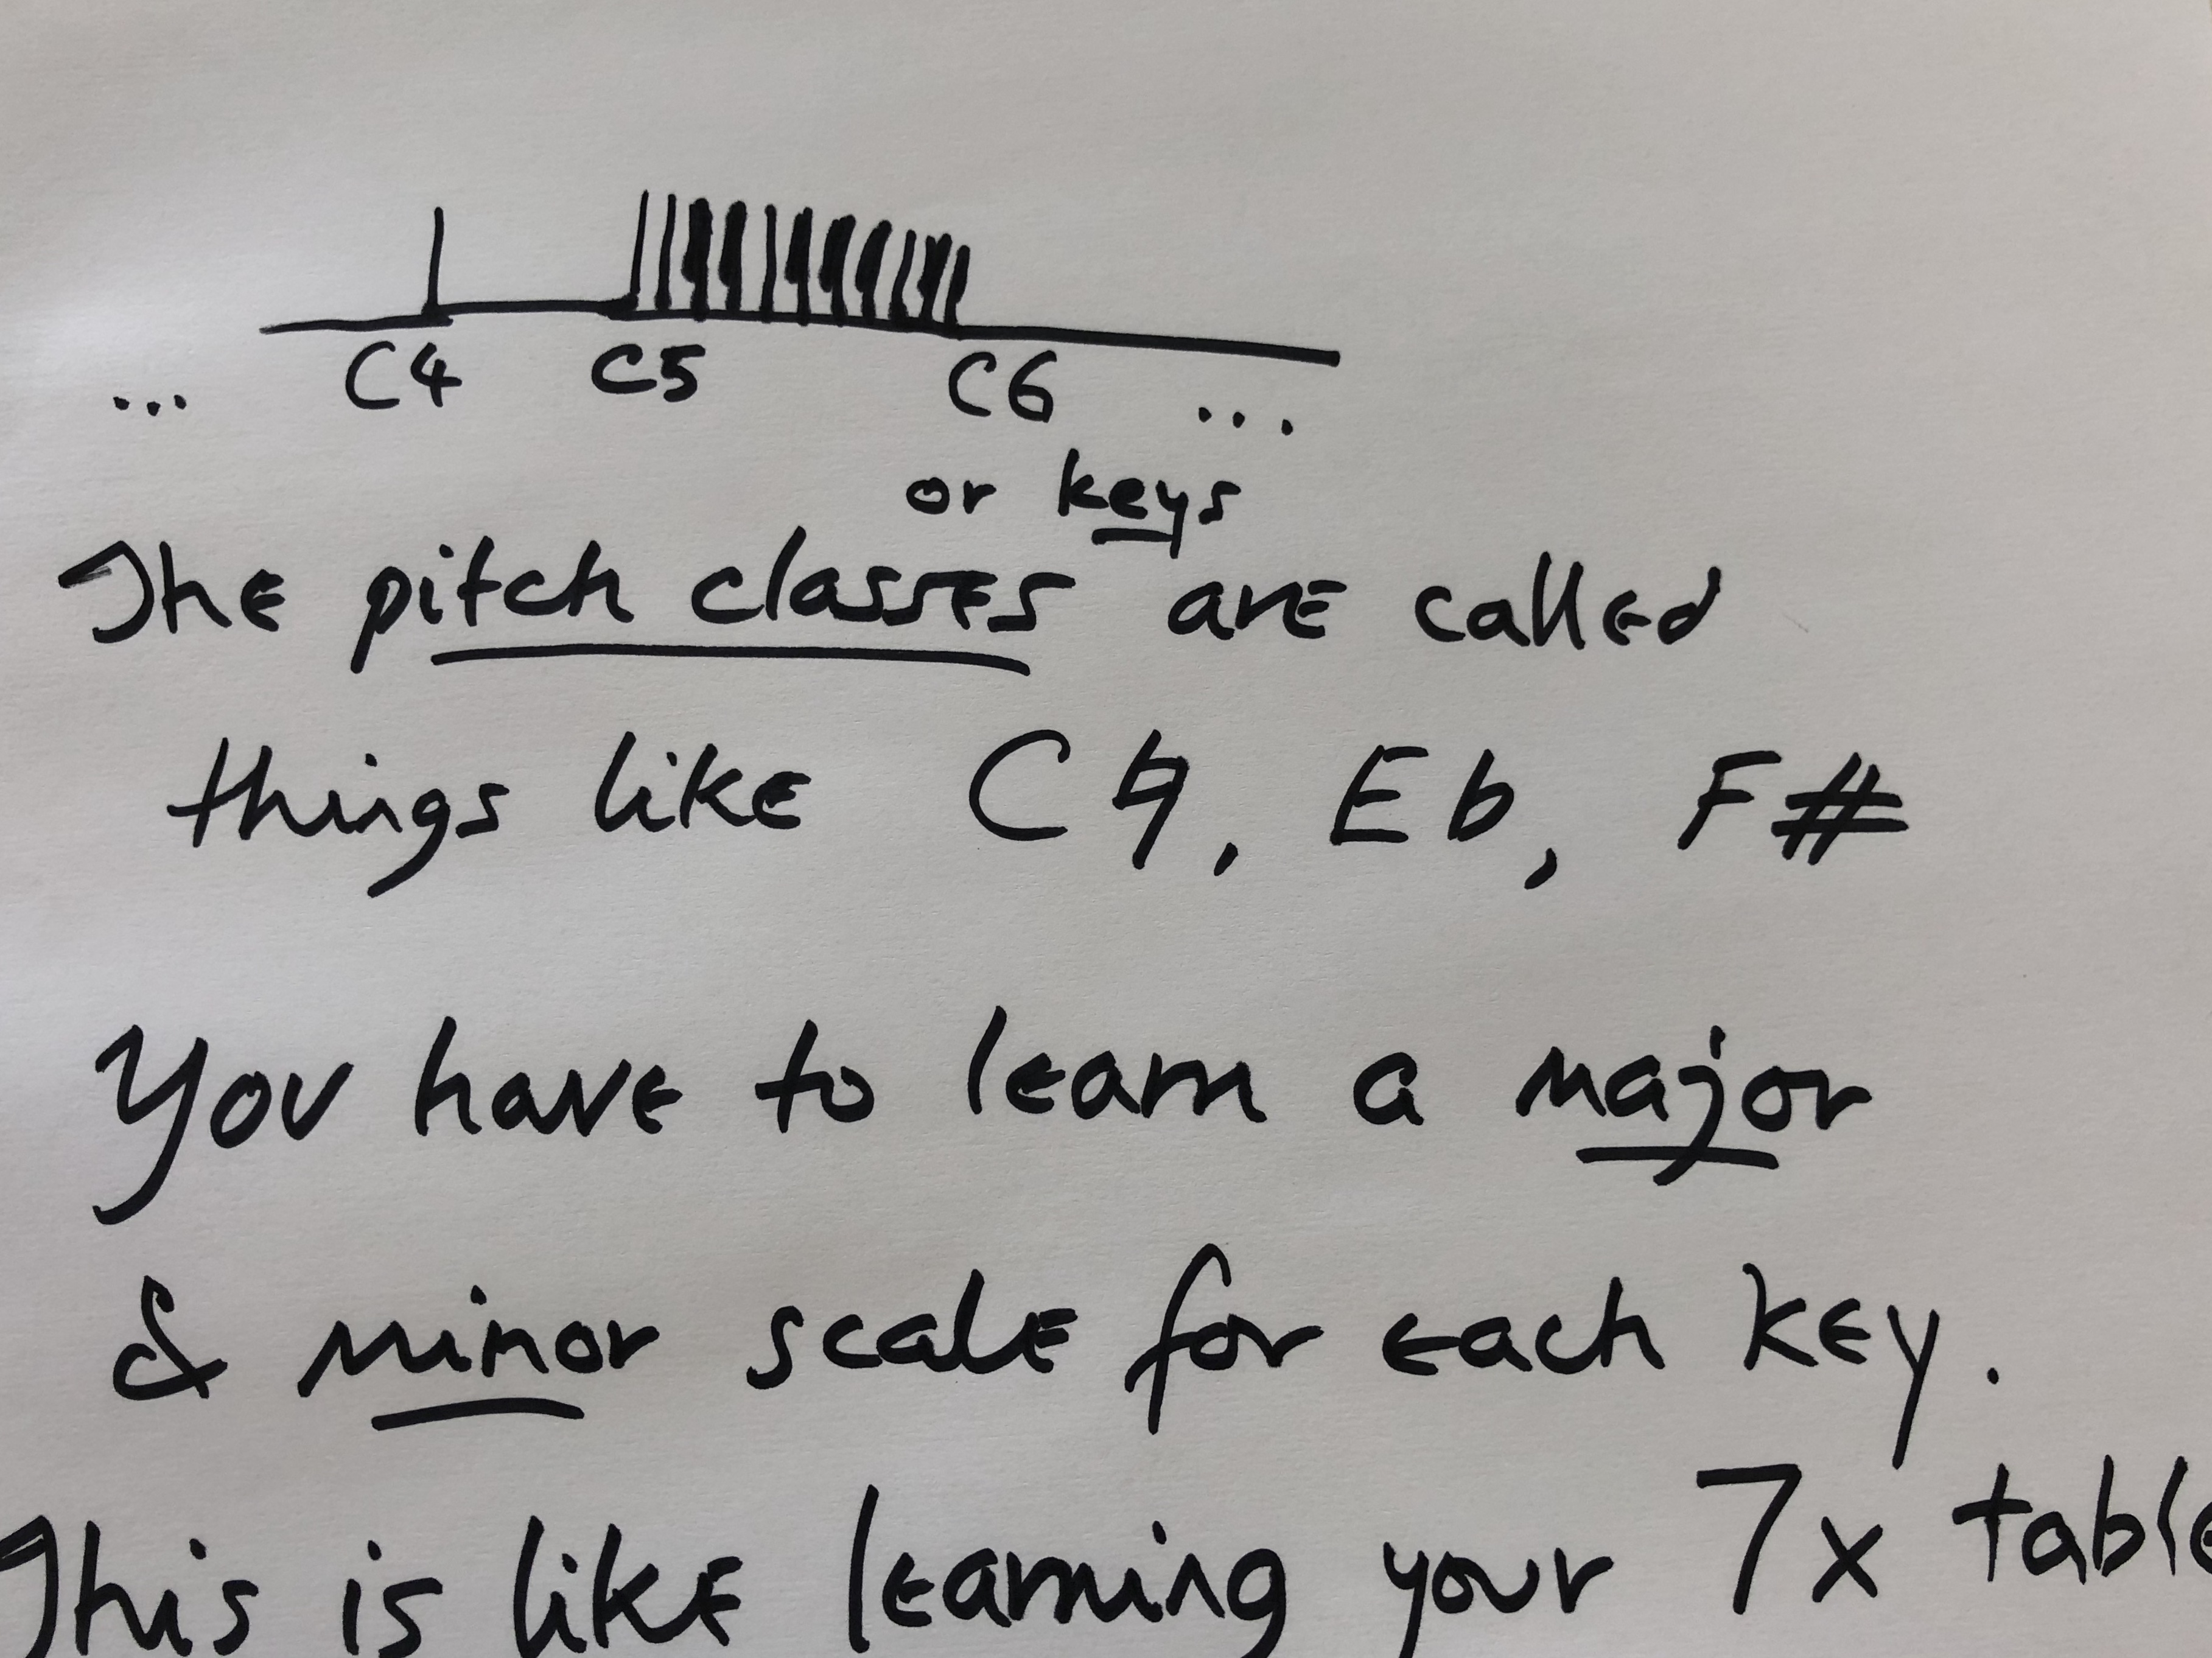 ... C4 C5 C6 ...
or keys
The pitch classes are called
things like C♮, Eb, F#
You have to learn a major
& minor scale for each key.
This is like learning your 7x table